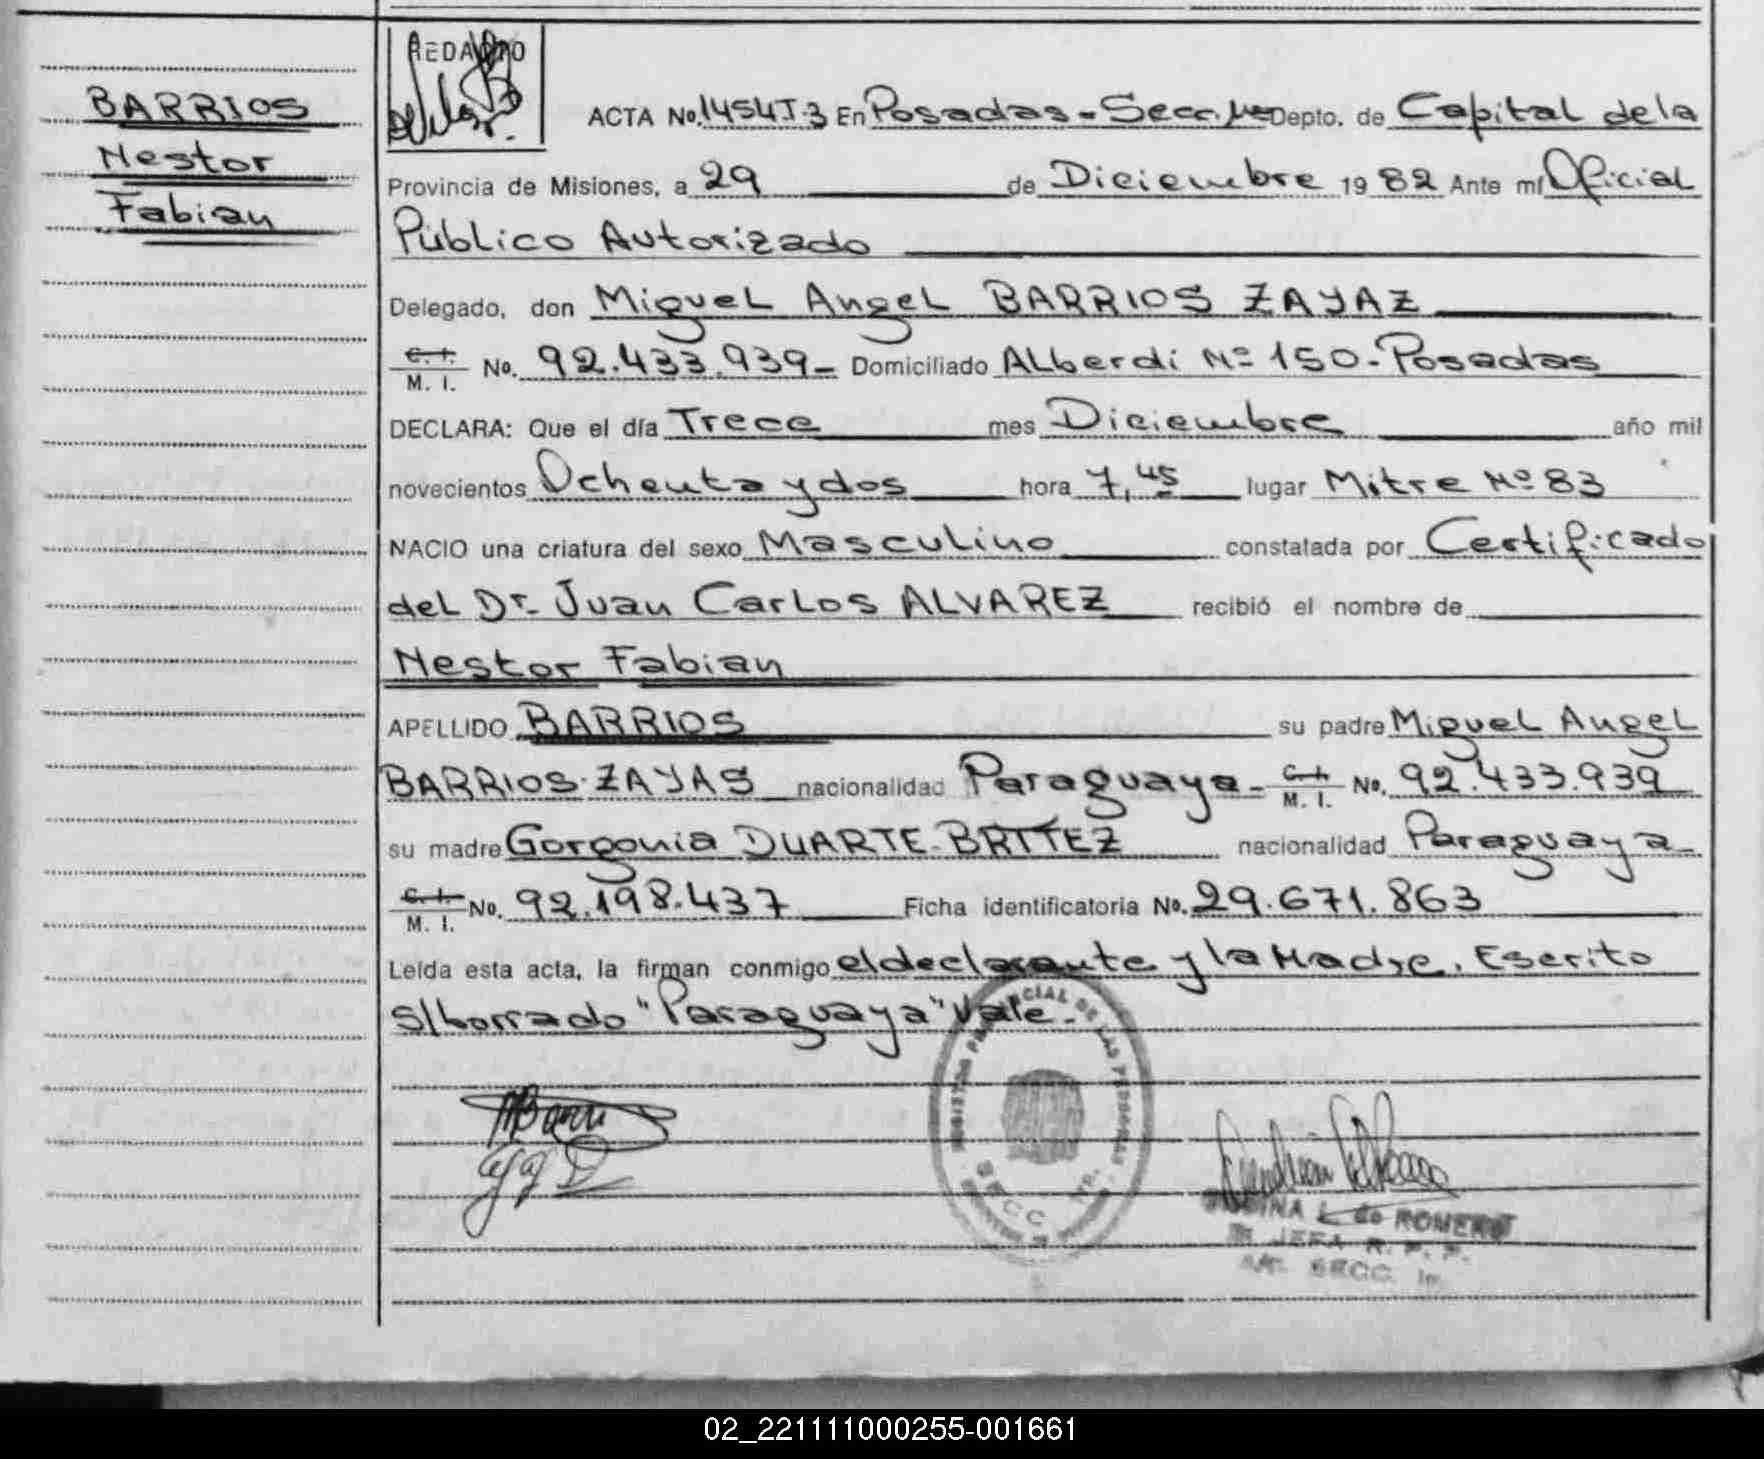 BARRIOS
Nestor
Fabian
REDACTO
ACTA No. 1454 T.3 En Posadas - Secc. 1ra Depto. de Capital de la
Provincia de Misiones, a 29 de Diciembre 19 82 Ante mí Oficial
Público Autorizado
Delegado, don Miguel Angel BARRIOS ZAYAZ
C. I.
M. I. No. 92.433.939- Domiciliado Alberdi Nº 150-Posadas
DECLARA: Que el día Trece mes Diciembre año mil
novecientos Ochenta y dos hora 7,45 lugar Mitre Nº 83
NACIO una criatura del sexo Masculino constatada por Certificado
del Dr. Juan Carlos ALVAREZ recibió el nombre de
Nestor Fabian
APELLIDO BARRIOS su padre Miguel Angel
BARRIOS-ZAYAS nacionalidad Paraguaya- C. I.
M. I. No. 92.433.939
su madre Gorgonia DUARTE-BRITEZ nacionalidad Paraguaya
C. I.
M. I. No. 92.198.437 Ficha identificatoria No. 29.671.863
Leída esta acta, la firman conmigo el declarante y la Madre. Escrito
S/borrado "Paraguaya" Vale.
DE LAS PERSONAS
SECC.
L. de ROMERO
JEFA R. P. P.
SECC. 1a.
02_221111000255-001661